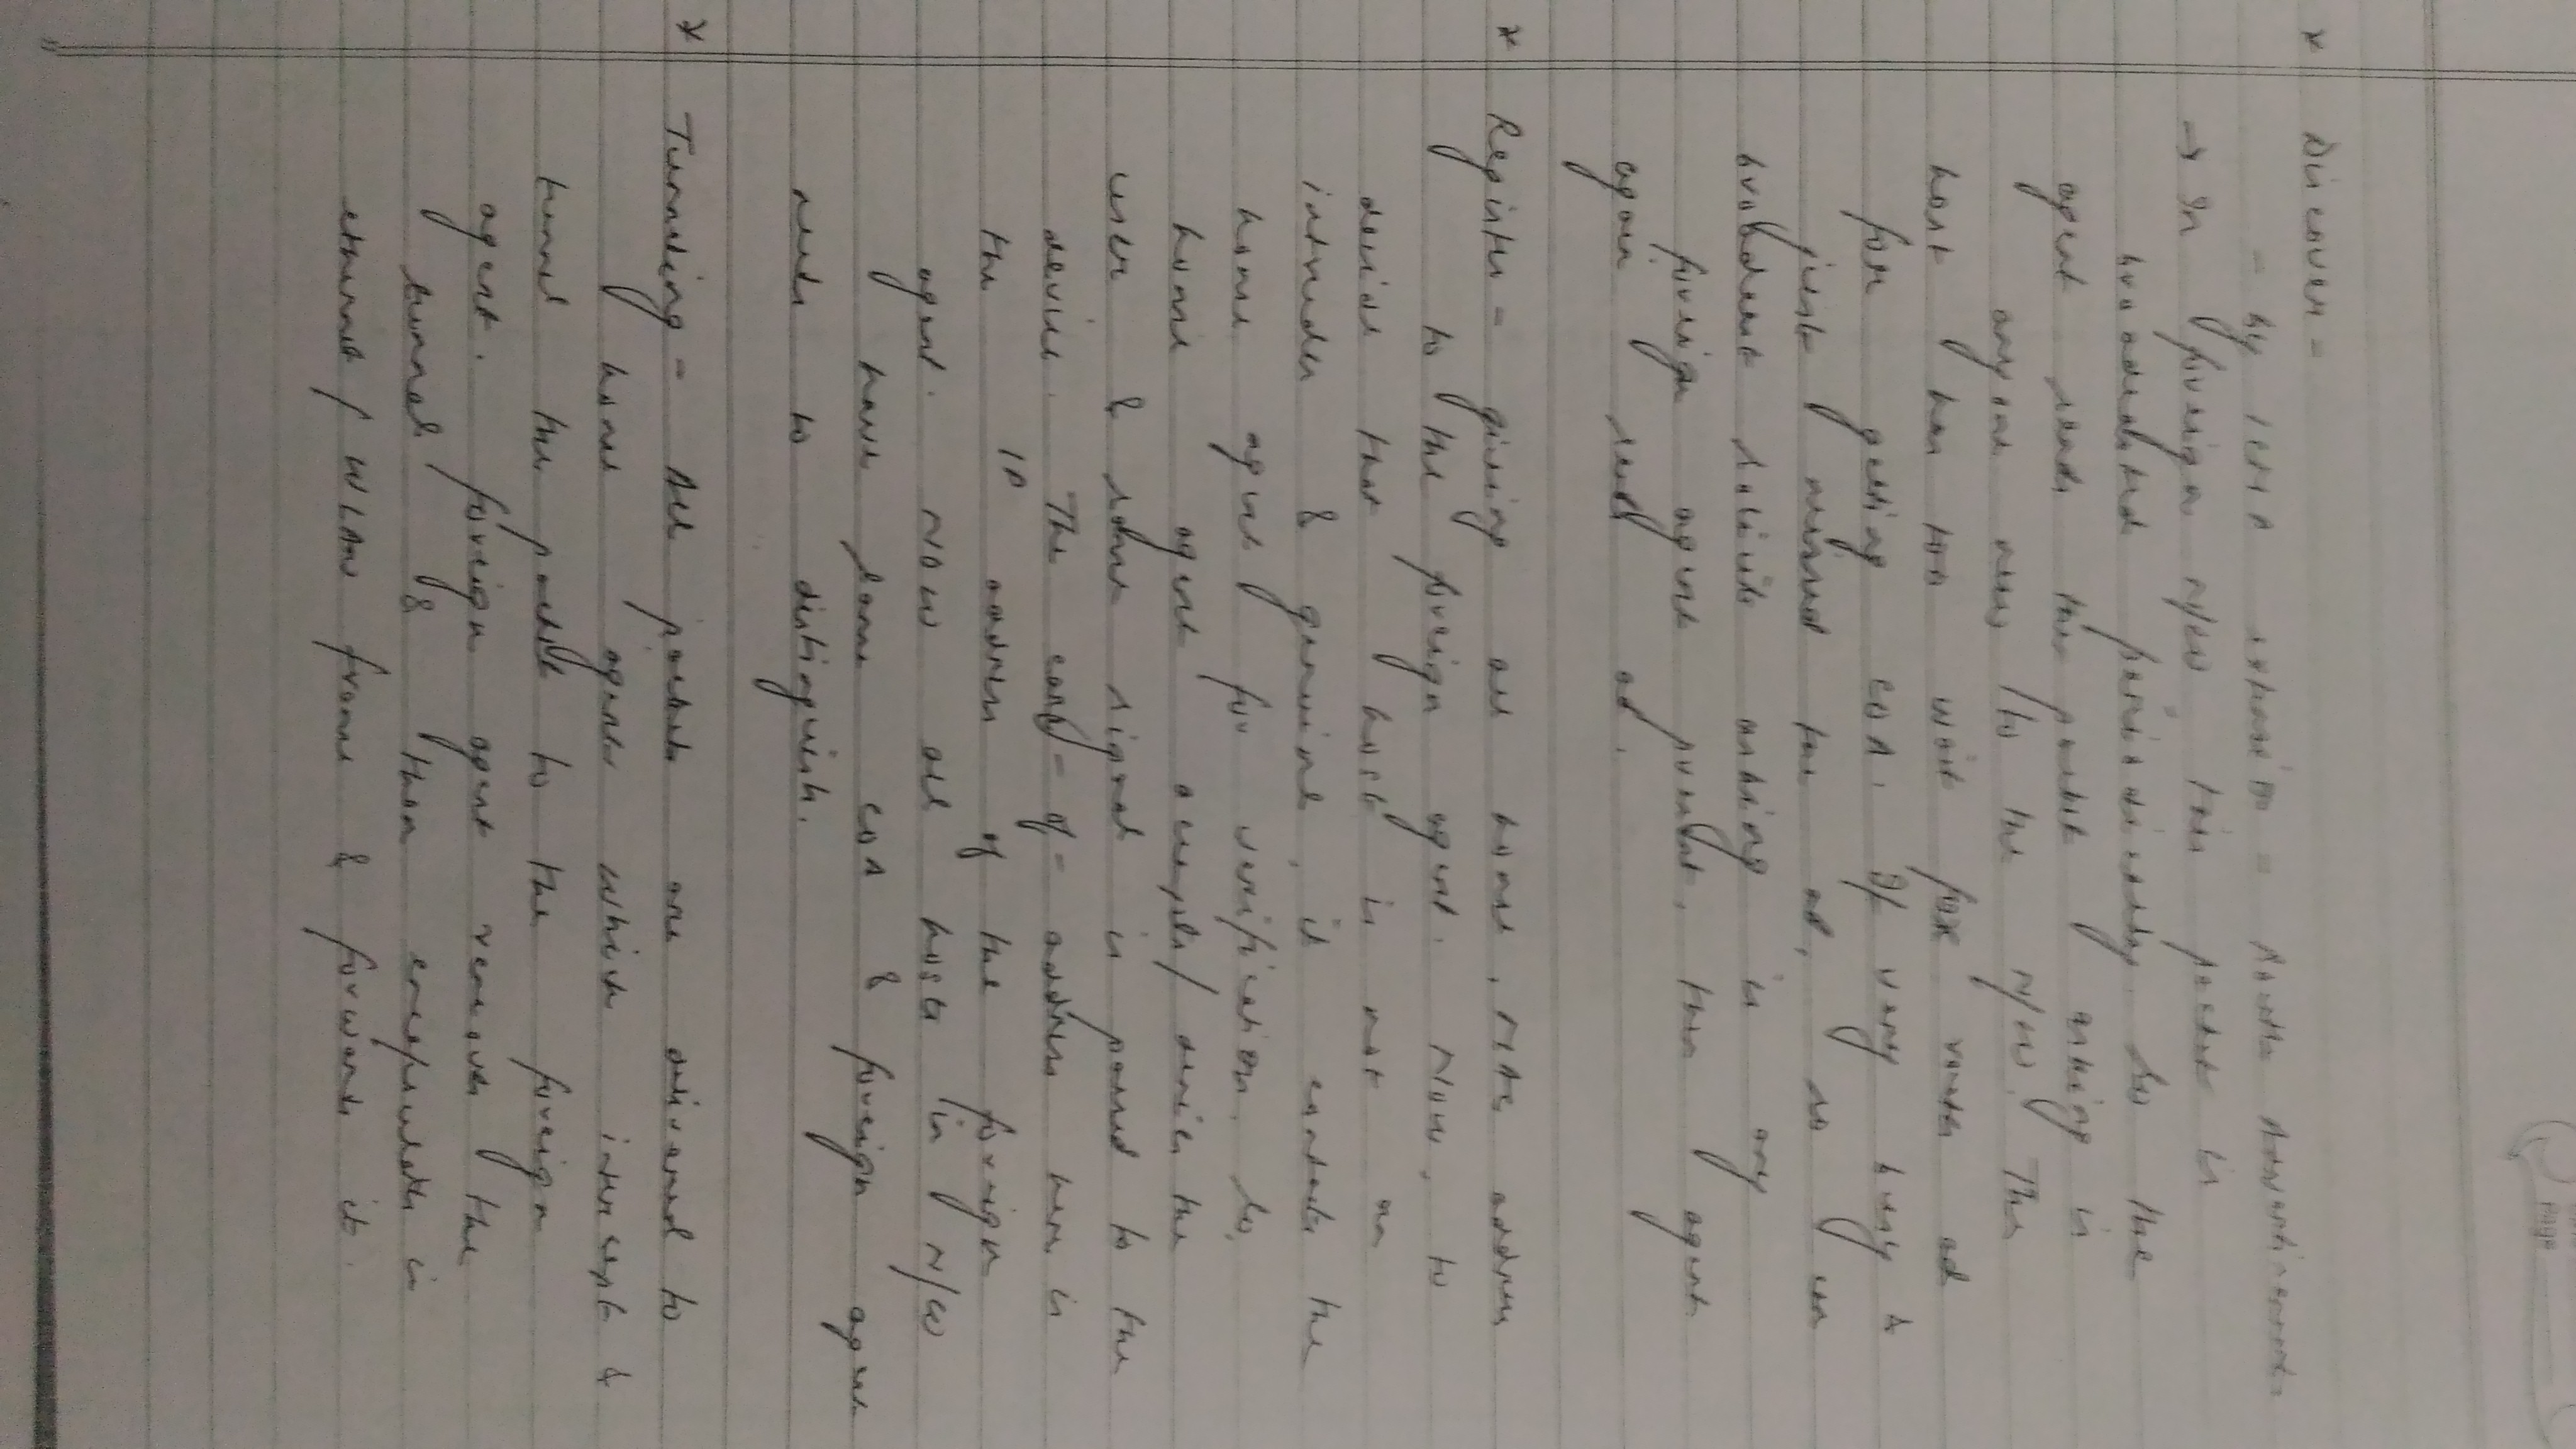 Page
* Discover -
- by ICMP extension - Router Advertisement
→ In foreign N/W, this packet is
broadcasted periodically. So the
agent sends this packet asking is
anyone new to the N/W. The
host has too wait for router ad
for getting COA. If very busy &
just missed the ad, so can
broadcast solicite asking is any
foreign agent present, then agent
again sends ad.
* Register - giving all home, MAC address
to the foreign agent. Now, to
decide that host is not an
intruder & genuine, it contacts the
home agent for verification. So,
home agent accepts/ denies the
user & same signal is passed to the
device. The care-of-address here is
the IP address of the foreign
agent. Now all hosts in N/W
have same COA & foreign agent
needs to distinguish.
* Tunneling - All packets are delivered to
home agent which intercept &
tunnel the packet to the foreign
agent. foreign agent removes the
tunnel & then encapsulates in
ethernet / WLAN frame & forwards it.